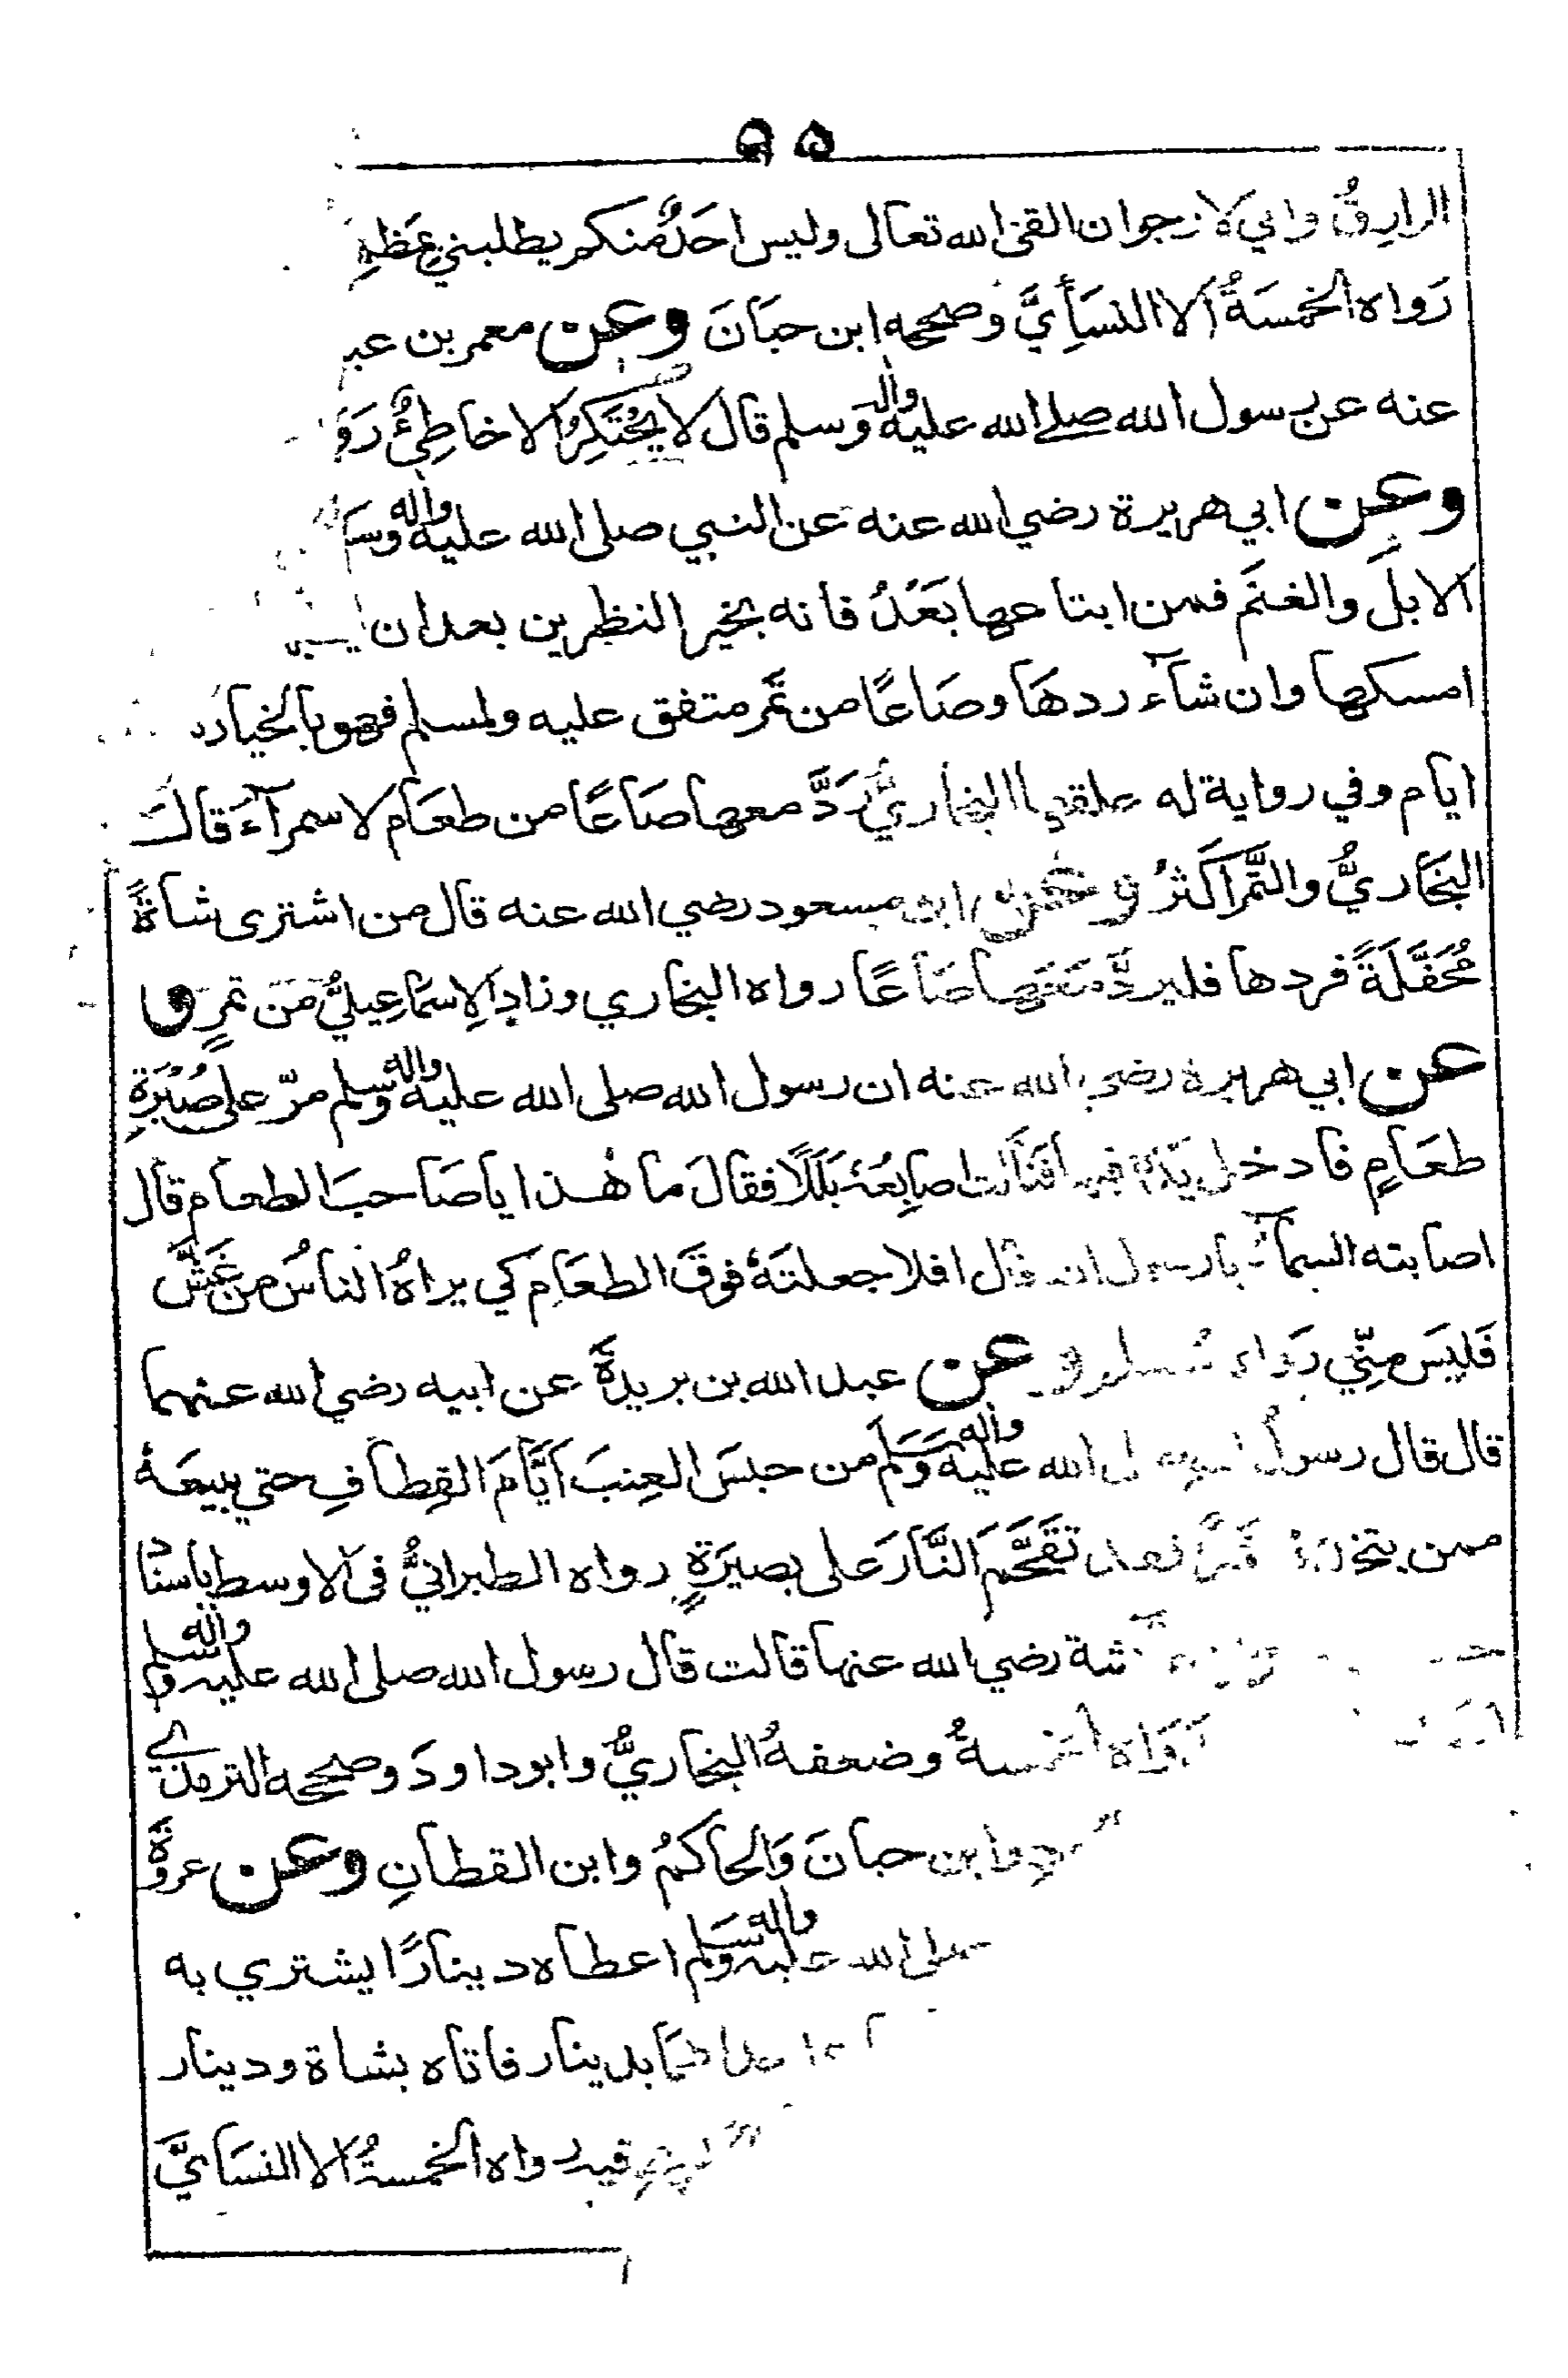 ٩٥
الرازِقُ واني لارجو ان القى الله تعالى وليس احَدٌ منكم يطلبني
رَواه الخمسَةُ الا النسَأِيَّ وصححه ابن حبَانَ وعن معمر بن
عنه عن رسول الله صلے الله عليه واله وسلم قال لا يَحْتَكِرُ الا خاطِئٌ
وعن ابي هريرة رضي الله عنه عن النبي صلى الله عليه واله
الابلَ والغنَم فمن ابتاعها بَعْدُ فانه بخير النظرين بعد ان
امسكها وان شآء ردهَا وصَاعًا من تَمر متفق عليه ولمسلم فهو بالخيار
ايام وفي رواية له علقها البخاريُّ رَدَّ معها صَاعًا من طعَام لا سمرآءَ قالَ
البخَاريُّ والتَّمر اكَثرُ وعن ابن مسعود رضي الله عنه قال من اشترى شاةً
مُحَفَّلَةً فردها فليردَّ مَعَها صَاعًا رواه البخاري وزاد الاِسمَاعِيليُّ مَن تمرٍ و
عن ابي هريرة رضي الله عنه ان رسول الله صلى الله عليه واله وسلم مرّ على صُبْرَةِ
طعَامٍ فادخل يَدَهُ فيها فنَالَت اصابِعُهُ بَلَلًا فقالَ ما هٰذا يا صَاحبَ الطعام قال
اصابته السمآءُ يا رسول الله قال افلا جعلتَهٗ فوقَ الطعَامِ كي يراهُ الناسُ من غَشَّ
فَليسَ مِنّي رَواه مُسلم وعن عبد الله بن بريدةَ عن ابيه رضي الله عنهما
قال قال رسول الله عليه واله وَسَلَّم من حبسَ العِنبَ اَيَّامَ القِطافِ حتي يبيعَهٗ
ممن يتخذهُ فقد تقَحَّمَ النَّارَ على بصيرَةٍ رواه الطبرانيُّ فى الاوسط باسنَاد
رضي الله عنها قالت قال رسول الله صلى الله عليه واله وسلم
رَوَاه الخمسةُ وضعفهُ البخاريُّ وابو داودَ وصححه الترمذي
وابن حبانَ وَالحاكمُ وابن القطانِ وعن عروةَ
صلى الله عليه واله وسلم اعطاه دينارًا يشتري به
بدينار فاتاه بشاة ودينار
فيه رواه الخمسةُ الا النسَايَّ